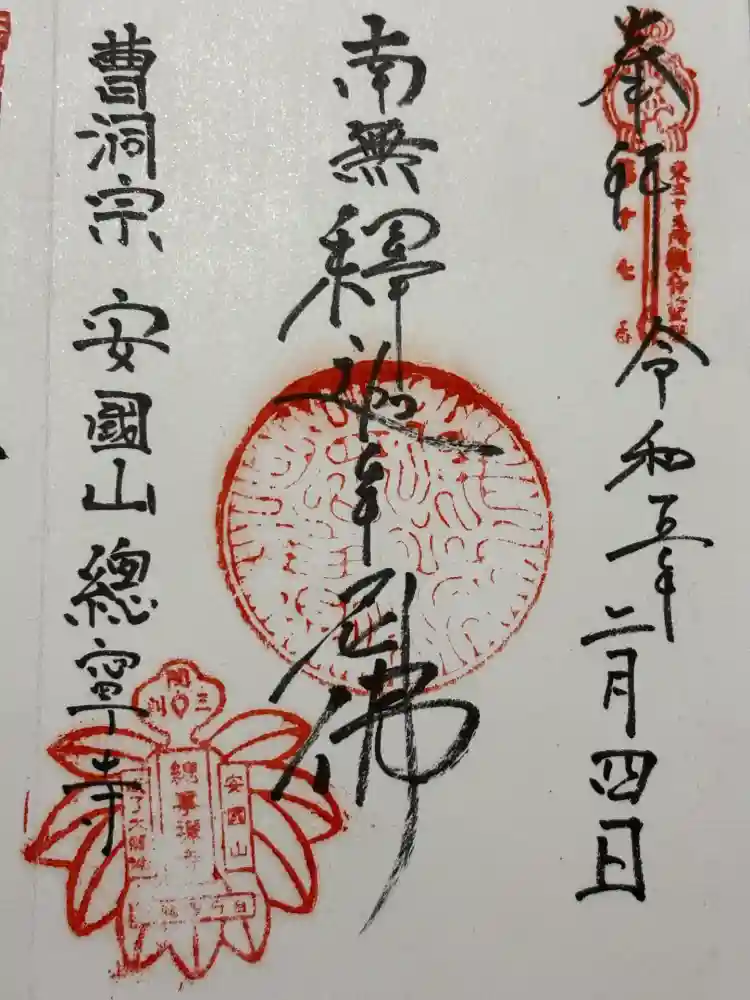 奉拝
令和五年二月四日
南無釋迦牟尼佛
曹洞宗 安國山 總寧寺
安國山
總寧禪寺